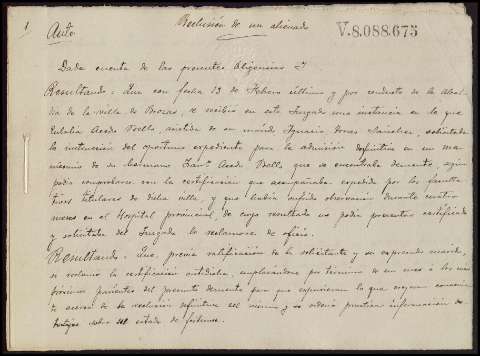 1 Auto Reclusión de un alienado V.8.088.675
Dada cuenta de las presentes diligencias y
Resultando: Que con fecha 13 de Febrero último y por conducto de la Alcal-
día de la villa de Brozas, se recibió en este Juzgado una instancia en la que
Eulalia Acedo, asistida de su marido Ignacio, solicitaba
la instrucción del oportuno expediente para la admisión definitiva en un ma-
nicomio de su hermano Acedo, que se encontraba demente, según
podía comprobarse con la certificación que acompañaba expedida por los faculta-
tivos titulares de dicha villa, y que había sufrido observación durante cuatro
meses en el Hospital provincial, de cuyo resultado no podía presentar certificado
y solicitaba del Juzgado la reclamara de oficio.
Resultando: Que previa ratificación de la solicitante y su expresado marido,
se reclamó la certificación, emplazándose por término de un mes á los más
próximos parientes del presunto demente para que expusieran lo que creyeran convenien-
te acerca de la reclusión definitiva del mismo y se ordenó practicar información
sobre el estado de fortuna.